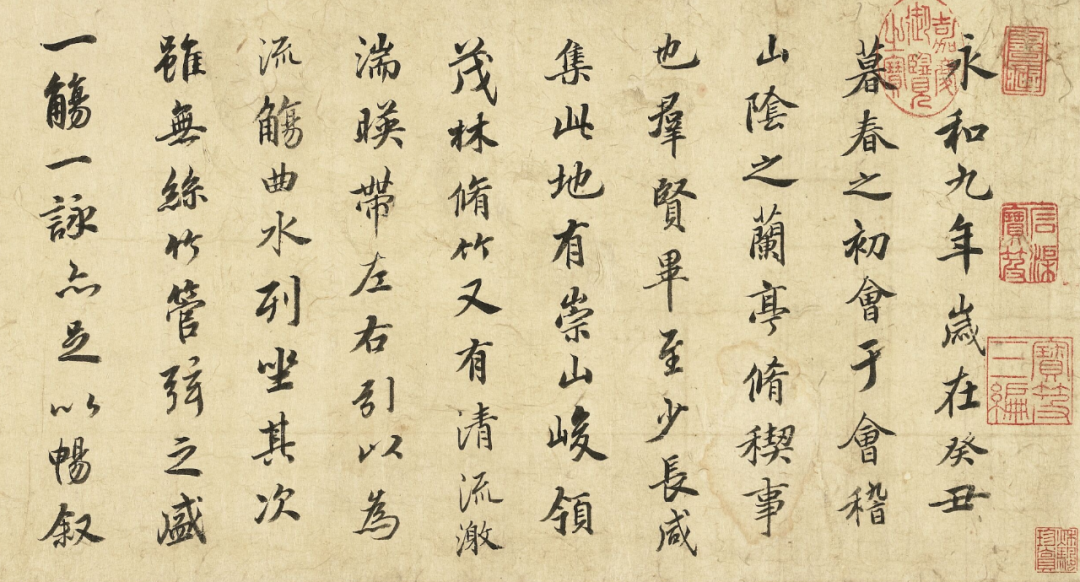 永和九年歲在癸丑
暮春之初會于會稽
山陰之蘭亭脩稧事
也羣賢畢至少長咸
集此地有崇山峻領
茂林脩竹又有清流激
湍暎帶左右引以為
流觴曲水列坐其次
雖無絲竹管弦之盛
一觴一詠亦足以暢叙
嘉慶御覽之寶
寶笈三編